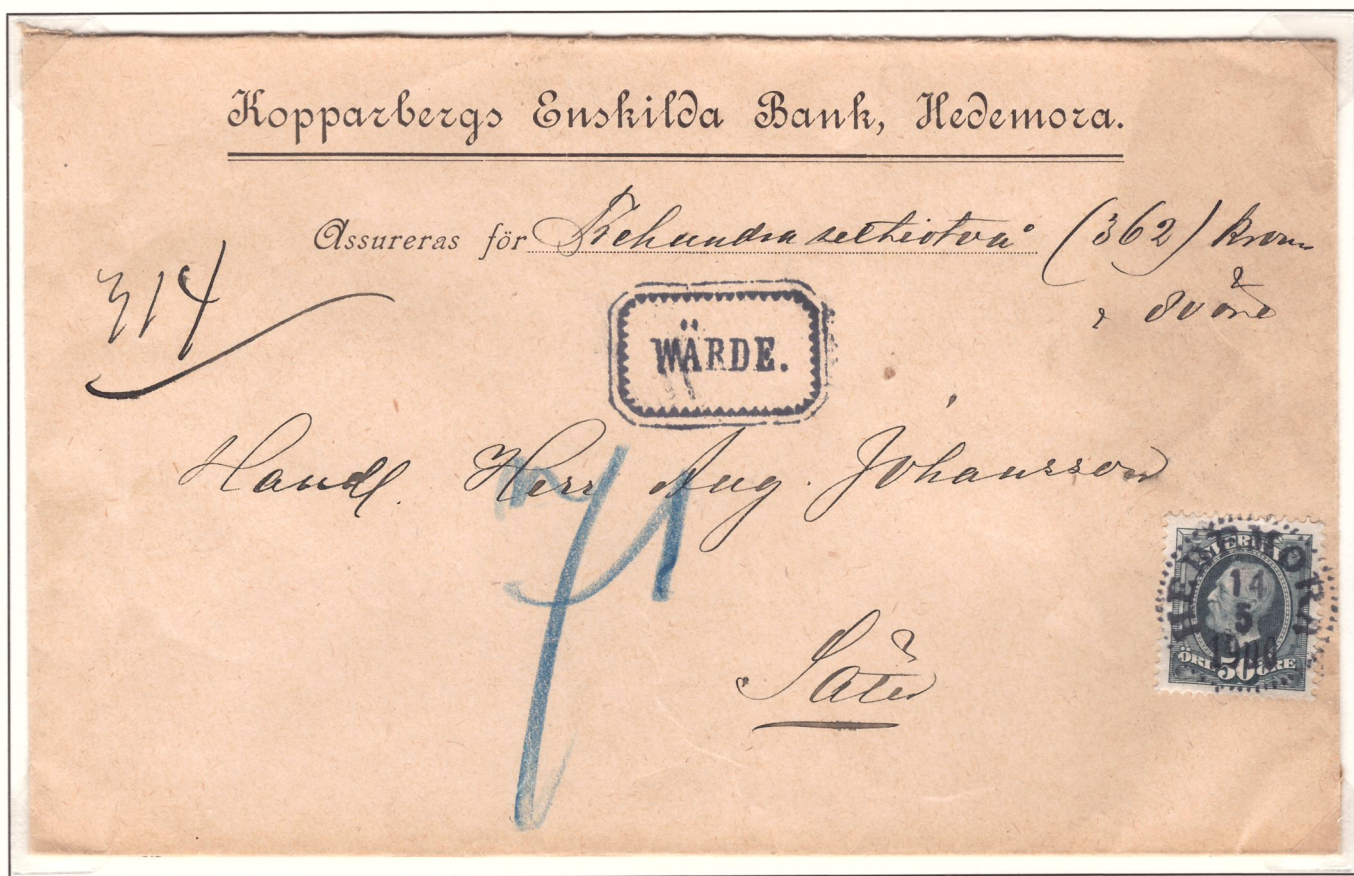 Kopparbergs Enskilda Bank, Hedemora.
Assureras för Trehundrasextiotvå (362) kronor
80 öre
314
WÄRDE.
Handl. Herr Aug. Johansson
71
Säter
SVERIGE
HEDEMORA
14
5
1900
ÖRE 50 ÖRE